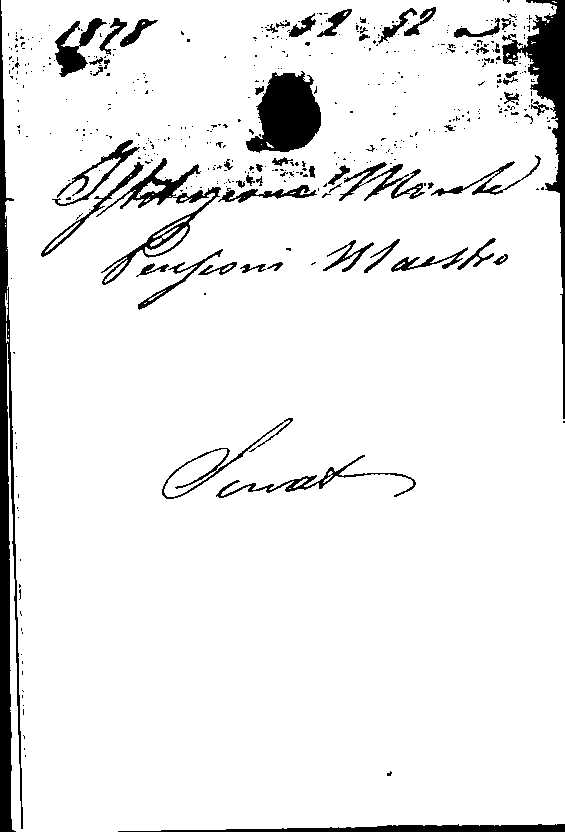 1878 52.52 a
Istituzione Monte
Pensioni Maestro
Senat